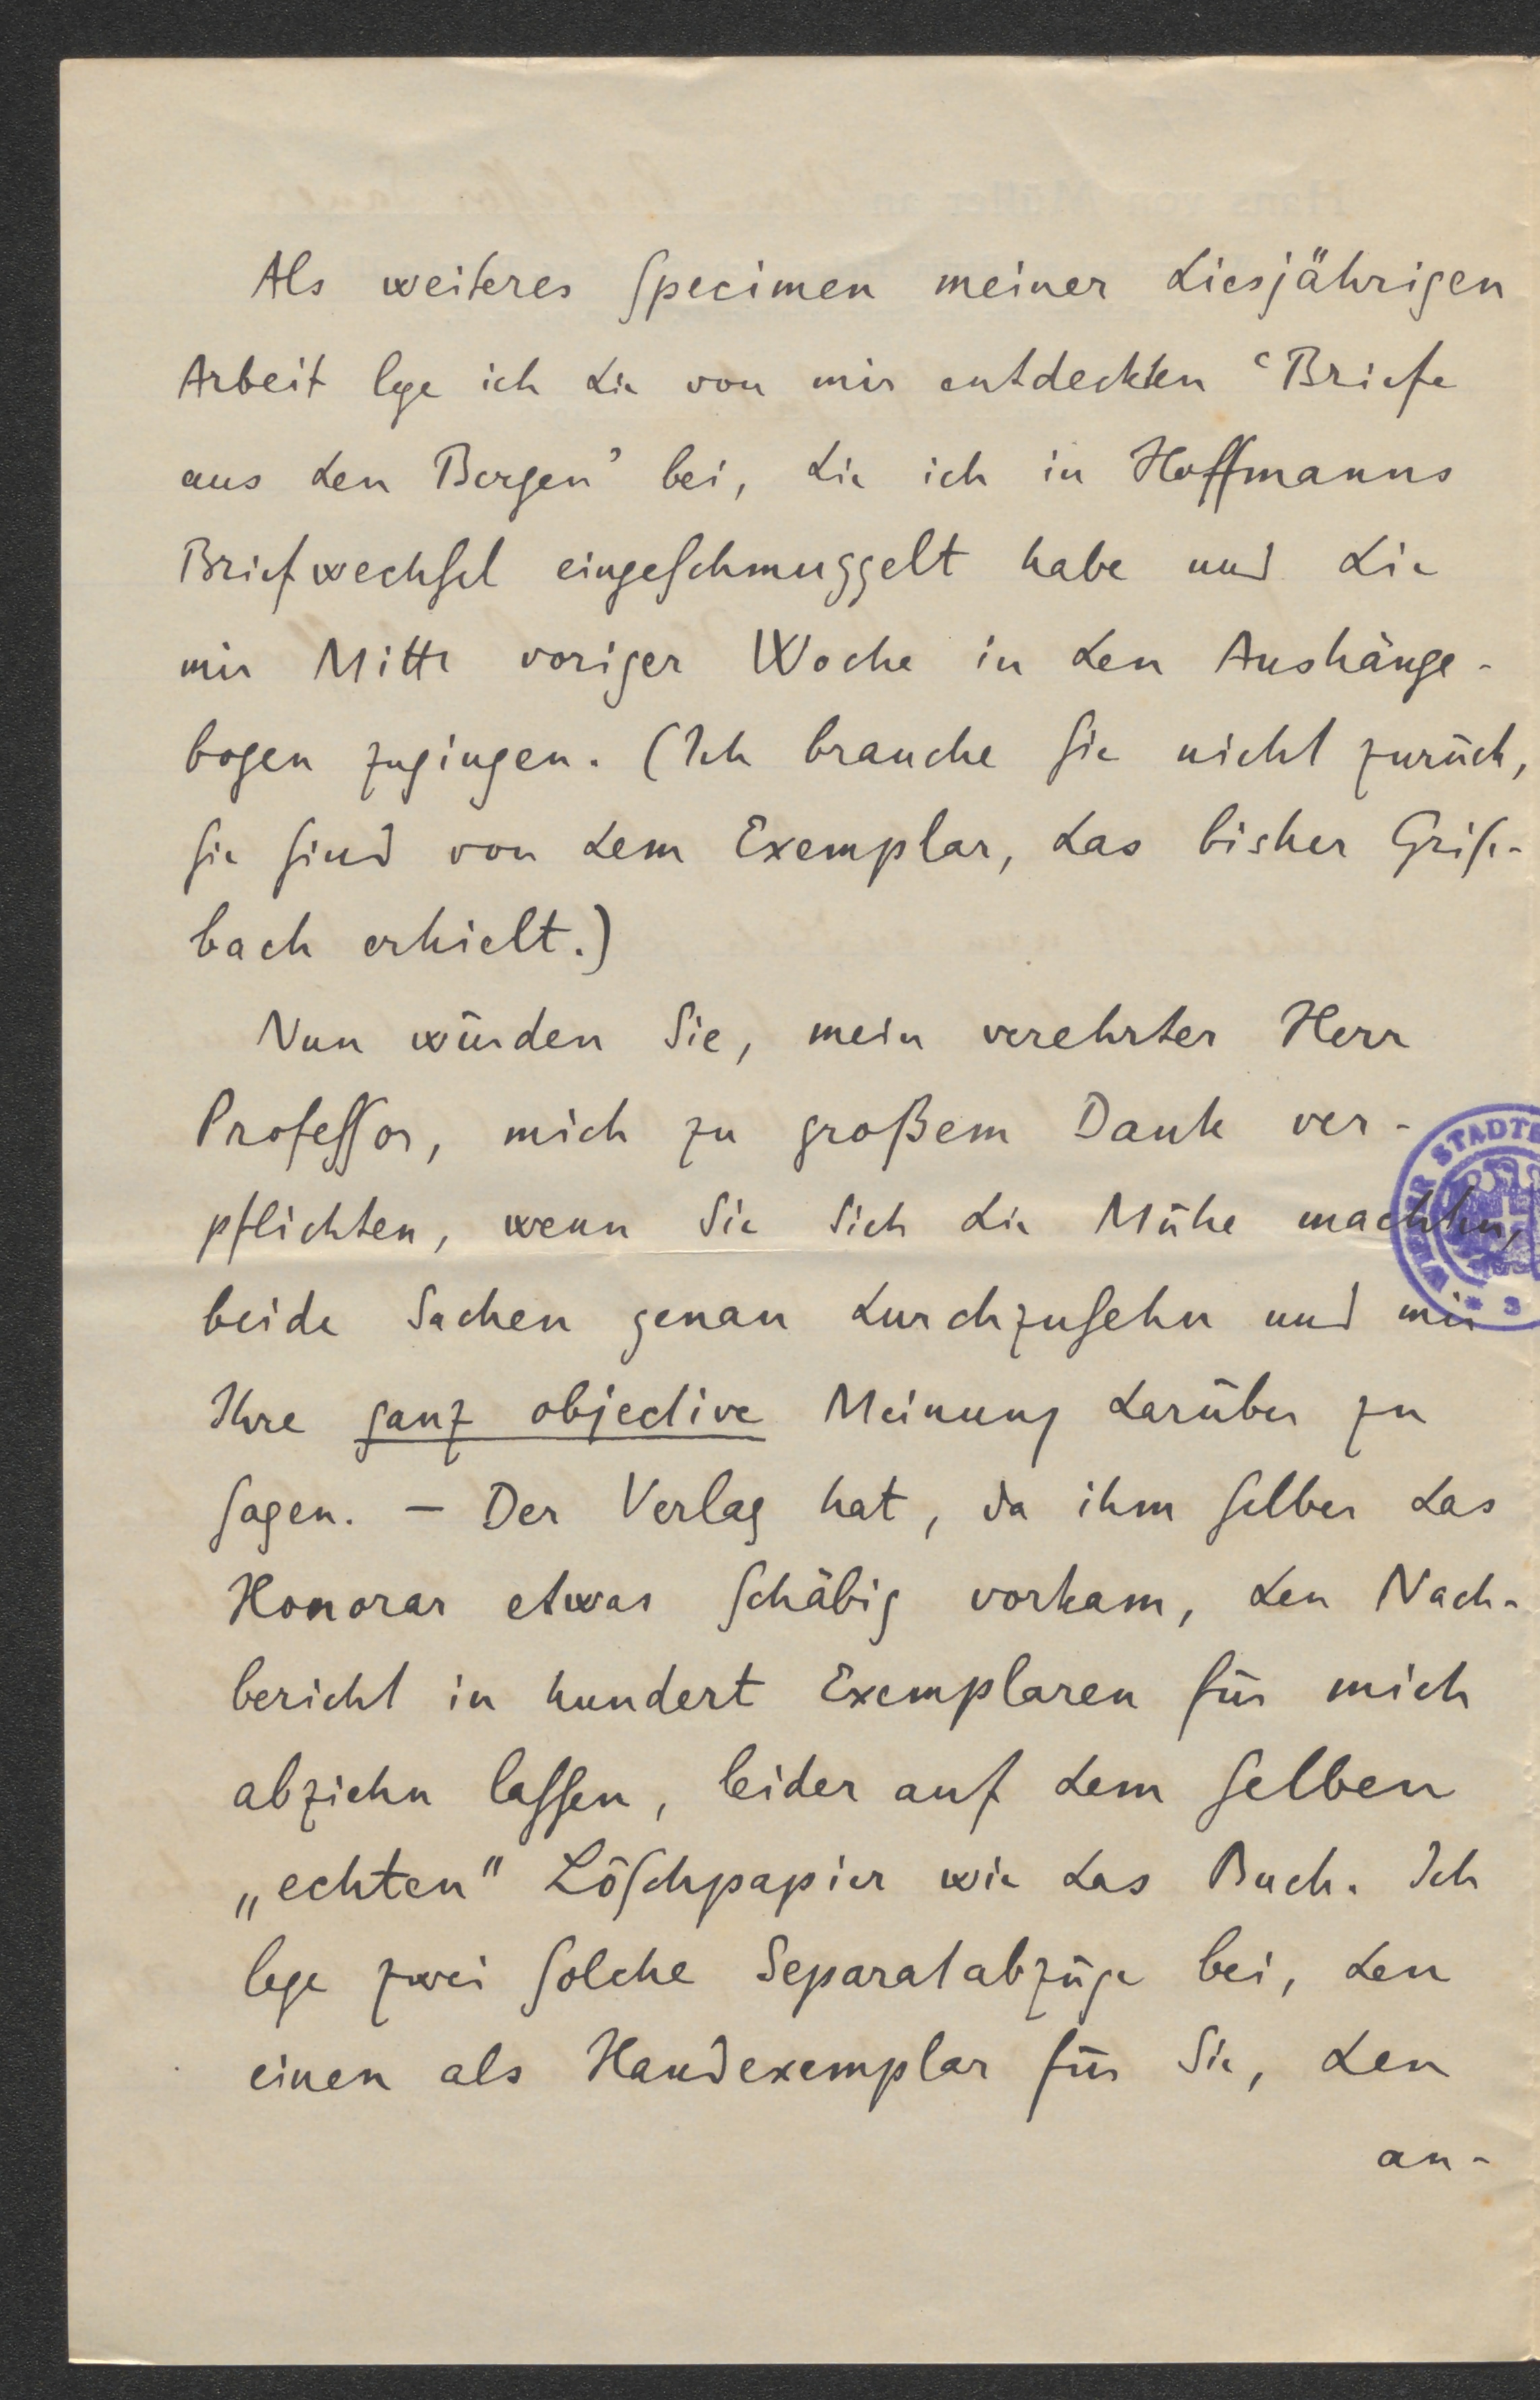 Als weiteres Specimen meiner diesjährigen
Arbeit lege ich die von mir entdeckten ‘Briefe
aus den Bergen’ bei, die ich in Hoffmanns
Briefwechsel eingeschmuggelt habe und die
mir Mitte voriger Woche in den Aushänge-
bogen zugingen. (Ich brauche sie nicht zurück,
sie sind von dem Exemplar, das bisher Grise-
bach erhielt.)
Nun würden Sie, mein verehrter Herr
Professor, mich zu großem Dank ver-
pflichten, wenn Sie Sich die Mühe machten,
beide Sachen genau durchzusehn und mir
Ihre ganz objective Meinung darüber zu
sagen. — Der Verlag hat, da ihm selber das
Honorar etwas schäbig vorkam, den Nach-
bericht in hundert Exemplaren für mich
abziehn lassen, leider auf dem selben
„echten“ Löschpapier wie das Buch. Ich
lege zwei solche Separatabzüge bei, den
einen als Handexemplar für Sie, den
an-